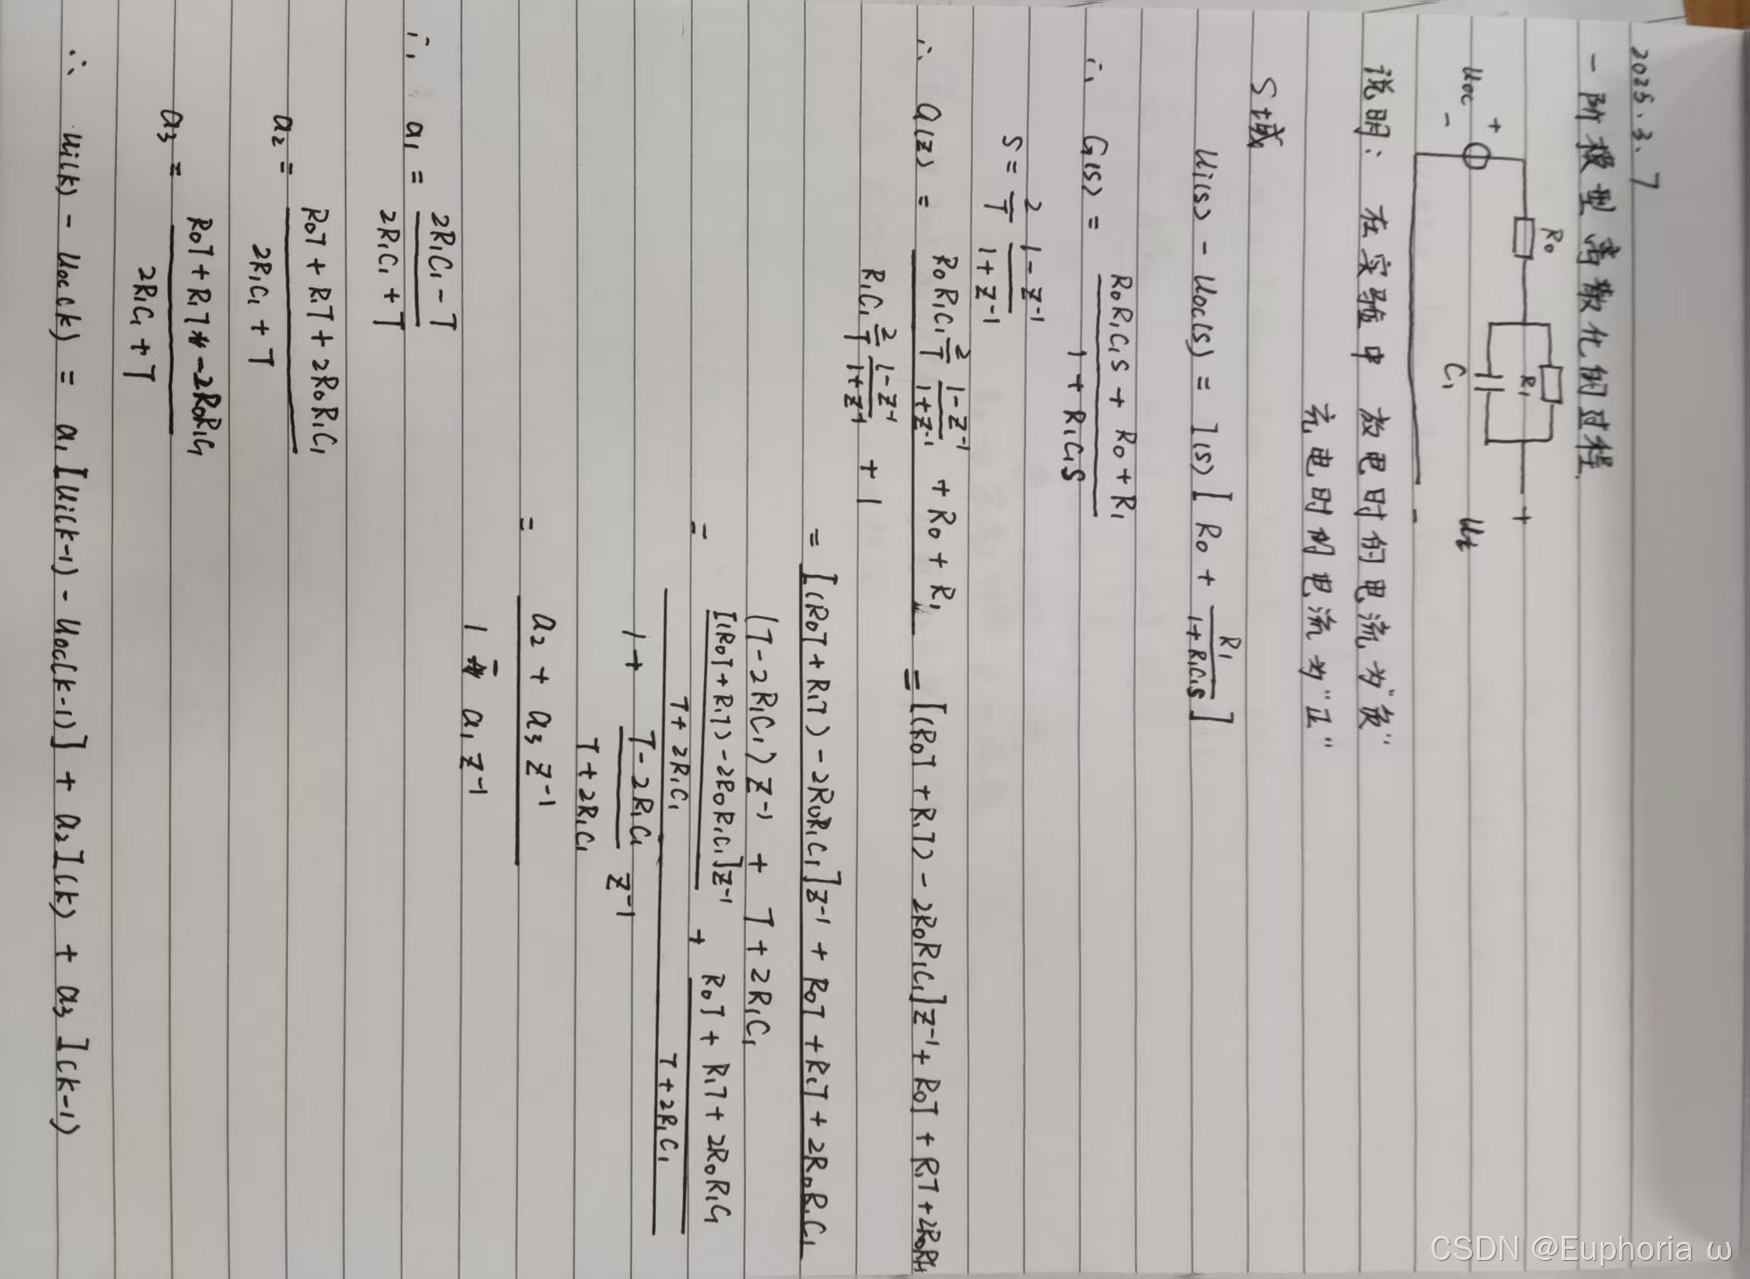 2025.3.7
一阶模型离散化的过程
Uoc + - R0 R1 C1 + - 
说明: 在实验中 放电时的电流为"负"
充电时的电流为"正"
S域
Ui(s) - Uoc(s) = I(s) [ R0 + R1/(1+R1C1S) ]
∴ G(s) = (R0R1C1S + R0 + R1)/(1 + R1C1S)
S = 2/T (1-z⁻¹)/(1+z⁻¹)
∴ G(z) = (R0R1C1 2/T (1-z⁻¹)/(1+z⁻¹) + R0 + R1)/(R1C1 2/T (1-z⁻¹)/(1+z⁻¹) + 1) = [(R0T + R1T) - 2R0R1C1]z⁻¹ + R0T + R1T + 2R0R1
= ([(R0T + R1T) - 2R0R1C1]z⁻¹ + R0T + R1T + 2R0R1C1)/((T-2R1C1)z⁻¹ + T + 2R1C1)
= ([(R0T + R1T) - 2R0R1C1]z⁻¹/(T + 2R1C1) + (R0T + R1T + 2R0R1C1)/(T+2R1C1))/(1 + (T-2R1C1)/(T+2R1C1) z⁻¹)
= (a2 + a3 z⁻¹)/(1 - a1 z⁻¹)
∴ a1 = (2R1C1 - T)/(2R1C1 + T)
a2 = (R0T + R1T + 2R0R1C1)/(2R1C1 + T)
a3 = (R0T + R1T - 2R0R1C1)/(2R1C1 + T)
∴ Ui(k) - Uoc(k) = a1 [Ui(k-1) - Uoc(k-1)] + a2 I(k) + a3 I(k-1)
CSDN @Euphoria ω